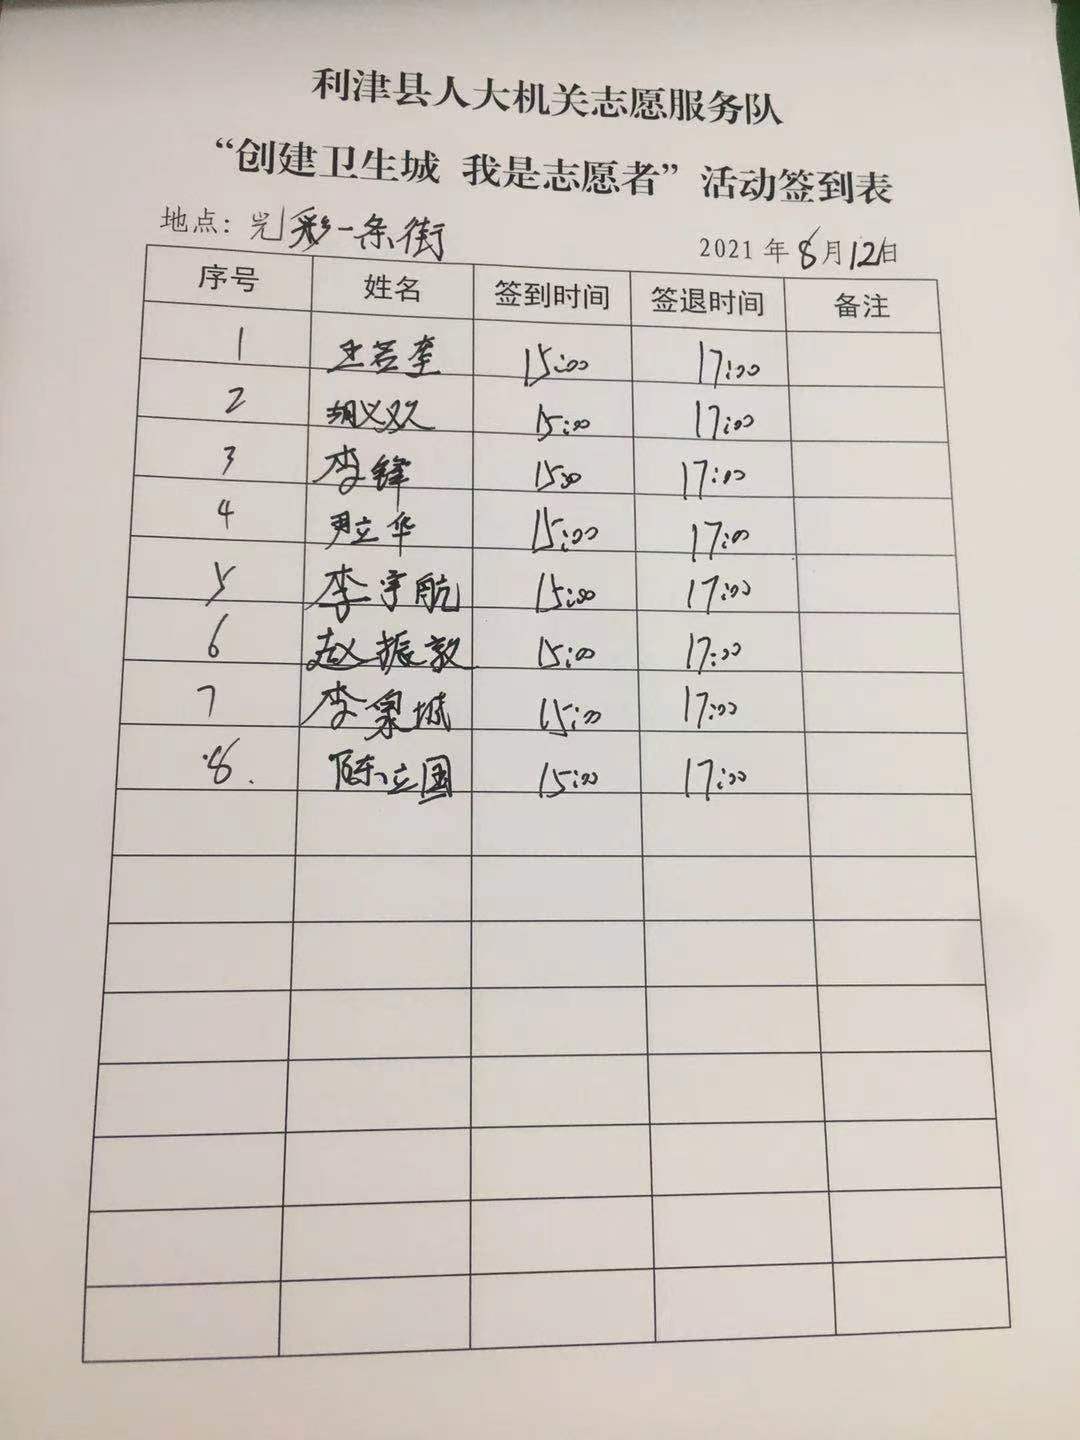 利津县人大机关志愿服务队
“创建卫生城 我是志愿者”活动签到表
地点：光彩一条街 2021年8月12日
序号 姓名 签到时间 签退时间 备注
1 王若奎 15:00 17:00
2 胡义双 15:00 17:00
3 李锋 15:00 17:00
4 尹立华 15:00 17:00
5 李宇航 15:00 17:00
6 赵振敦 15:00 17:00
7 李泉城 15:00 17:00
8. 陈立国 15:00 17:00